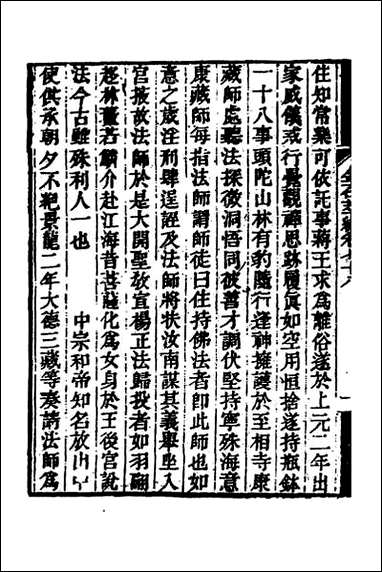 住知常樂可依託事蔣王求爲離俗遂於上元二年出
家威儀戒行覺觀禪思跡履眞如空用恒捨遂持瓶鉢
一十八事頭陀山林有豹隨行逢神擁護於至相寺康
藏師處聽法探微洞悟同彼善才調伏堅持寧殊海意
康藏師每指法師謂師徒曰住持佛法者即此師也如
意之歲淫刑肆逞誣及法師將狀汝南謀其義舉坐入
宮掖故法師於是大開聖敎宣揚正法歸投者如羽翮
趍林若鱗介赴江海昔菩薩化爲女身於王後宮說
法今古雖殊利人一也　　中宗和帝知名放出中
使供承朝夕不絕景龍二年大德三藏等奏請法師爲